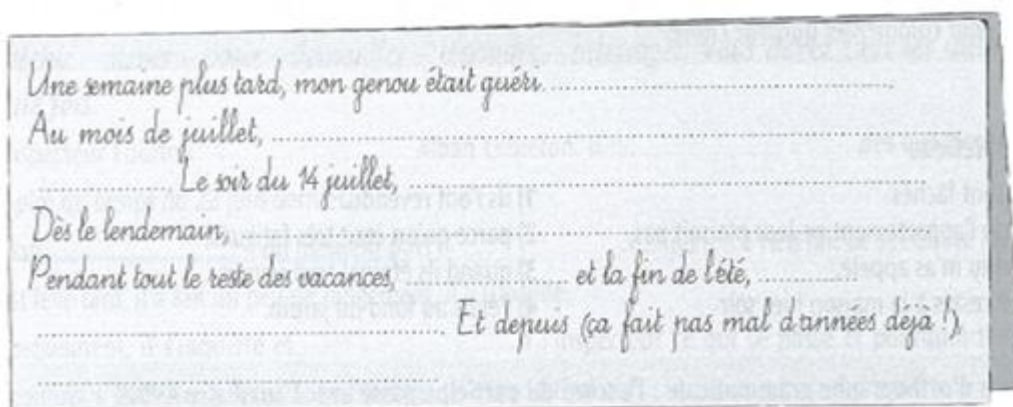 Une semaine plus tard, mon genou était guéri. ..........
Au mois de juillet, ..........
.......... Le soir du 14 juillet, ..........
Dès le lendemain, ..........
Pendant tout le reste des vacances, .......... et la fin de l'été, ..........
.......... Et depuis (ça fait pas mal d'années déjà !),
..........